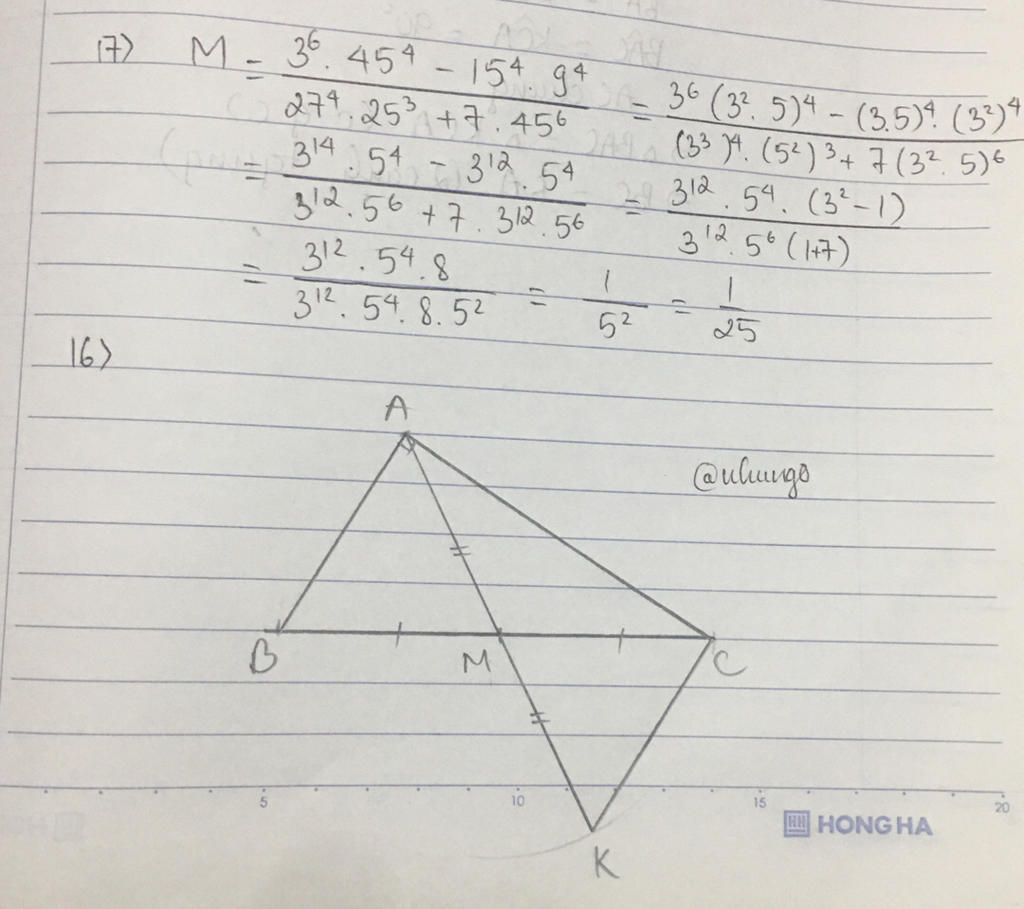 17) M = \frac{3^6 . 45^4 - 15^4 . 9^4}{27^4 . 25^3 + 7 . 45^6} = \frac{3^6 (3^2 . 5)^4 - (3.5)^4 . (3^2)^4}{(3^3)^4 . (5^2)^3 + 7 (3^2 . 5)^6}
= \frac{3^{14} . 5^4 - 3^{12} . 5^4}{3^{12} . 5^6 + 7 . 3^{12} . 5^6} = \frac{3^{12} . 5^4 . (3^2 - 1)}{3^{12} . 5^6 (1+7)}
= \frac{3^{12} . 5^4 . 8}{3^{12} . 5^4 . 8 . 5^2} = \frac{1}{5^2} = \frac{1}{25}
16)
A
B M C
5 10 15 20
HONG HA
K